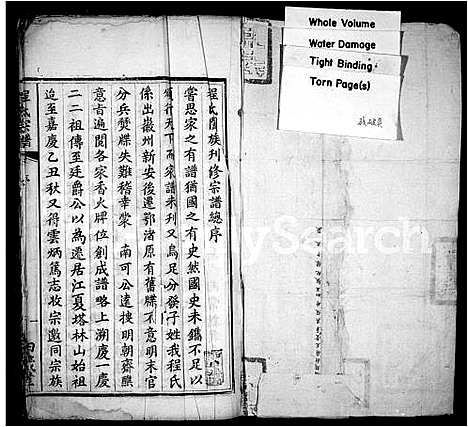 Whole Volume
Water Damage
Tight Binding
Torn Page(s)
程氏闔族刋修宗譜總序
嘗思家之有譜猶國之有史然國史未鐫不足以
行天下而家譜未刋又烏足分發子姓我程氏
係出徽州新安後遷鄂渚原有舊牒不意明末官
分兵燹牒失難稽幸棠 南可公遠搜明朝齋醮
意旨遍閱各家香火牌位創成譜略上溯慶一慶
二二祖傳至廷爵公以為遷居江夏塔林山始祖
迨至嘉慶乙丑秋又得雲炳篤志妝宗邀同宗族
程氏宗譜